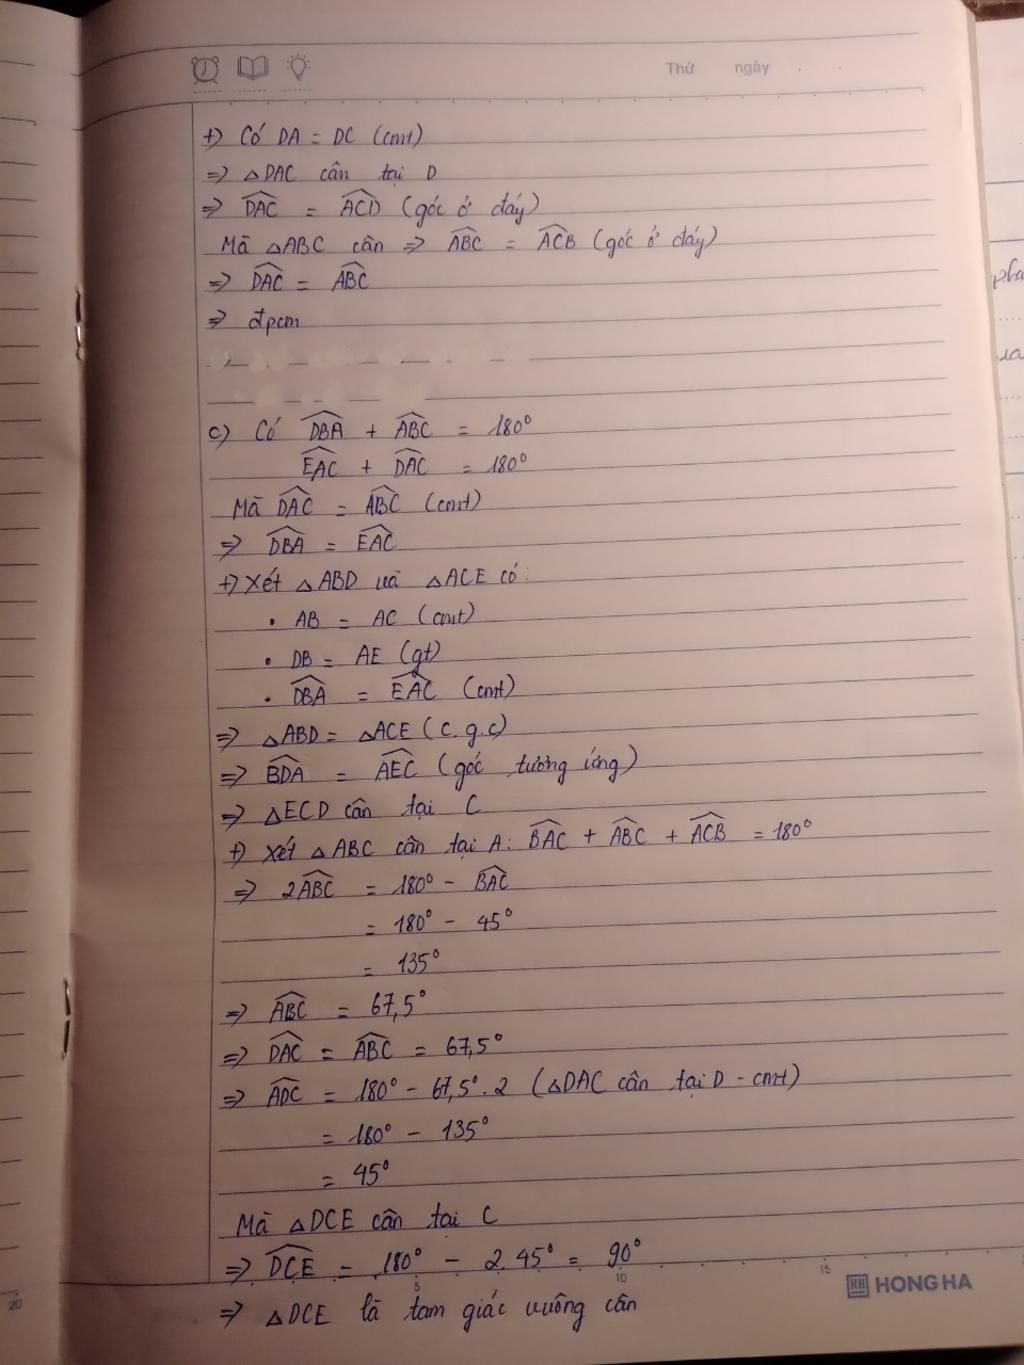 Thứ ngày
+) Có DA = DC (cmt)
=> △DAC cân tại D
=> \widehat{DAC} = \widehat{ACD} (góc ở đáy)
Mà △ABC cân => \widehat{ABC} = \widehat{ACB} (góc ở đáy)
=> \widehat{DAC} = \widehat{ABC}
=> đpcm
c) Có \widehat{DBA} + \widehat{ABC} = 180°
\widehat{EAC} + \widehat{DAC} = 180°
Mà \widehat{DAC} = \widehat{ABC} (cmt)
=> \widehat{DBA} = \widehat{EAC}
+) Xét △ABD và △ACE có:
• AB = AC (cmt)
• DB = AE (gt)
• \widehat{DBA} = \widehat{EAC} (cmt)
=> △ABD = △ACE (c.g.c)
=> \widehat{BDA} = \widehat{AEC} (góc tương ứng)
=> △ECD cân tại C
+) Xét △ABC cân tại A: \widehat{BAC} + \widehat{ABC} + \widehat{ACB} = 180°
=> 2\widehat{ABC} = 180° - \widehat{BAC}
= 180° - 45°
= 135°
=> \widehat{ABC} = 67,5°
=> \widehat{DAC} = \widehat{ABC} = 67,5°
=> \widehat{ADC} = 180° - 67,5°.2 (△DAC cân tại D - cmt)
= 180° - 135°
= 45°
Mà △DCE cân tại C
=> \widehat{DCE} = 180° - 2.45° = 90°
5 10 15
HONG HA
20
=> △DCE là tam giác vuông cân